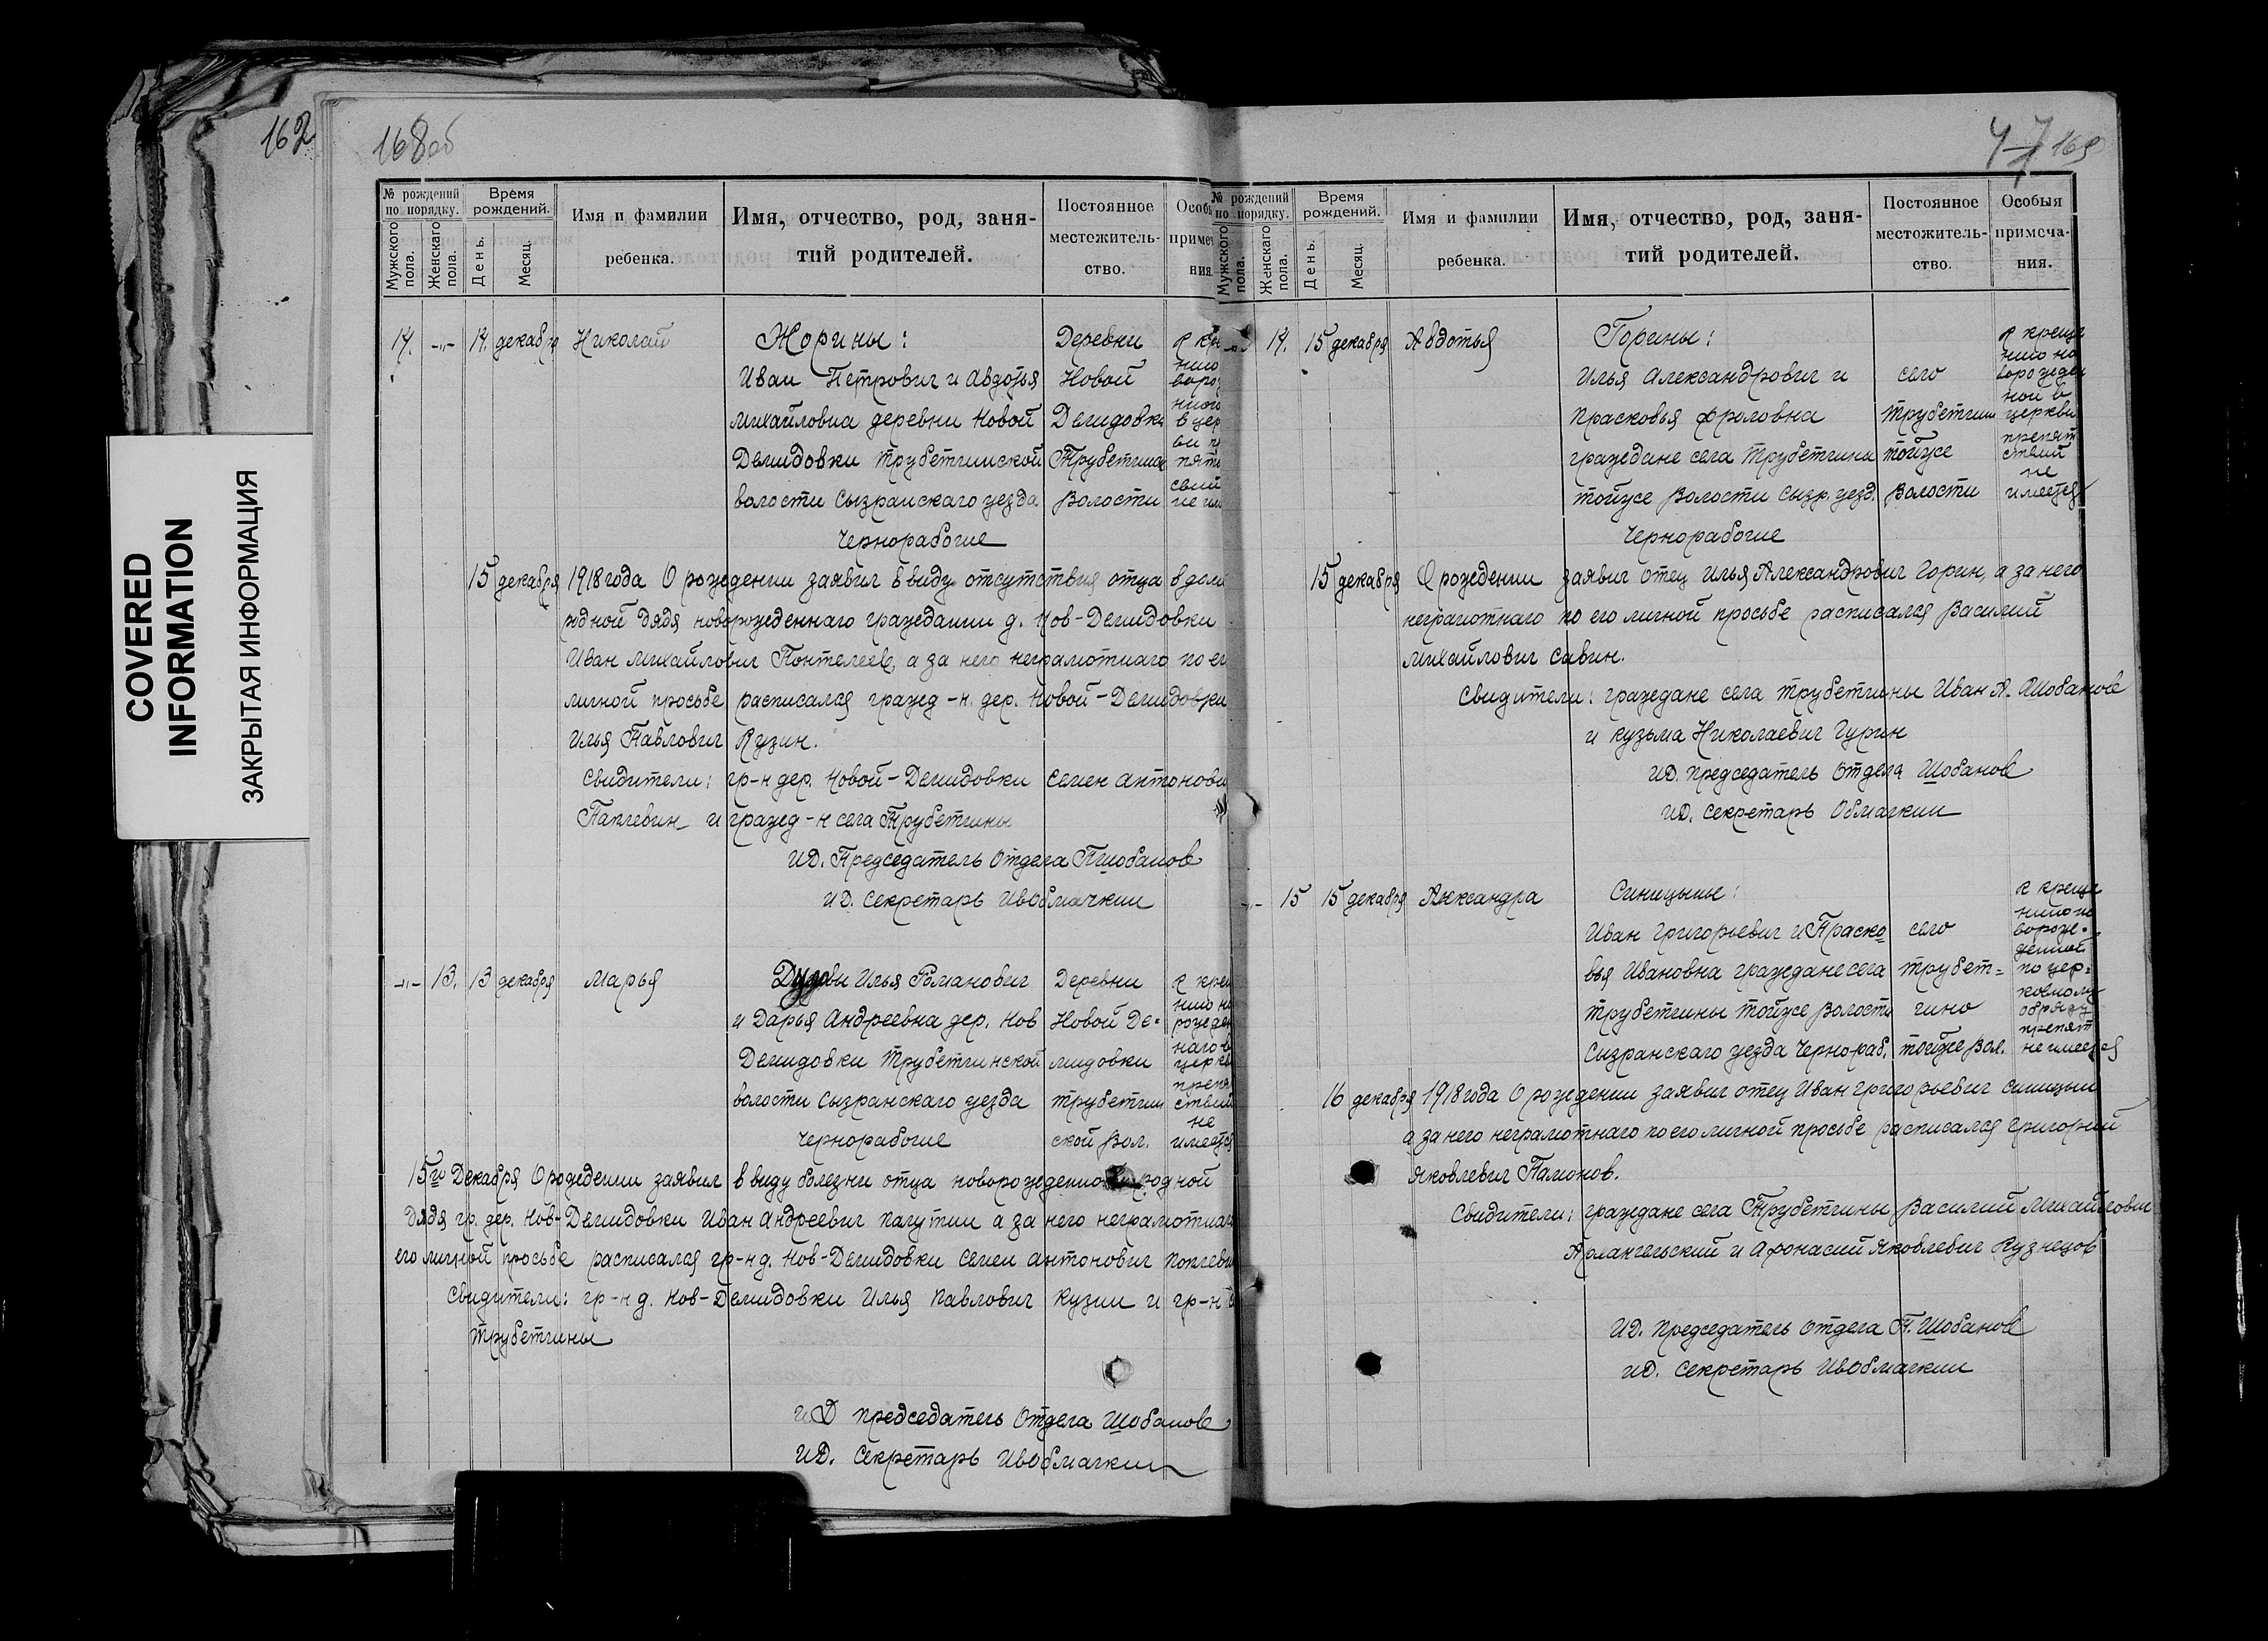 COVERED
INFORMATION
ЗАКРЫТАЯ ИНФОРМАЦИЯ
162
168об
№ рождений по порядку.
Мужского пола.
Женскаго пола.
Время рождений.
День.
Месяц.
Имя и фамилии ребенка.
Имя, отчество, род, занятий родителей.
Постоянное местожительство.
Особ
примеч
ния.
14. -„- 14. декабря Николай Жорины: Деревни
Иван Петрович и Авдотья Новой
Михайловна деревни Новой Демидовки
Демидовки Трубетчинской Трубетчинск
волости Сызранскаго уезда волости
Чернорабочие
к кре
нию
ворож
ннаго
в цер
кви пр
пятс
свий
не им
15 декабря 1918 года О рождении заявил ввиду отсутствия отца в доме
родной дядя новорожденнаго гражданин д. Нов-Демидовки
Иван Михайлович Понтелеев, а за него неграмотнаго по ег
личной просьбе расписался гражд-н. дер. Новой-Демидовки
Илья Павлович Кузин.
Свидители: гр-н дер. Новой-Демидовки Семен Антонови
Паплевин и гражд-н села Трубетчины
ИД. Председатель Отдела ПШобанов
ИД. Секретарь ИвОблачкин
-„- 13. 13 декабря Марья Илья Романович Деревни
и Дарья Андреевна дер. Нов Новой Де-
Демидовки Трубетчинской мидовки
волости Сызранскаго уезда трубетчин
Чернорабочие ской вол.
к кре
нию но
рожден
наго в
церкв
препя
ствий
не
имеется
15го Декабря О рождении заявил в виду болезни отца родной
дядя гр. дер. Нов-Демидовки Иван Андреевич а за него неграмотнаг
его личной просьбе расписался гр-н д. Нов-Демидовки Семен Антонович Поплеви
Свидители: гр-н д. Нов-Демидовки Илья Павлович Кузин и гр-н
Трубетчины
ИД председатель Отдела Шобанов
ИД. Секретарь ИвОблачкин
47 169
№ рождений по порядку.
Мужского пола.
Женскаго пола.
Время рождений.
День.
Месяц.
Имя и фамилии ребенка.
Имя, отчество, род, занятий родителей.
Постоянное местожительство.
Особыя примечания.
14. 15 декабря Авдотья Горины:
Илья Александрович и село
Прасковья Фроловна Трубетчин
граждане села Трубетчины тойже
тойже волости Сызр. уезд. волости
Чернорабочие
к креще
нию но
ворожден
ной в
церкви
препят
ствий
не
имеется
15 декабря О рождении заявил отец Илья Александрович Горин, а за него
неграмотнаго по его личной просьбе расписался Василий
Михайлович Савин.
Свидители: граждане села Трубетчины Иван А. Шобанов
и Кузьма Николаевич Гурин
ИД. Председатель Отдела Шобанов
ИД. Секретарь Облачкин
-„- 15 15 декабря Александра Синицыны:
Иван Григорьевич и Праско- село
вья Ивановна граждане села трубет-
Трубетчины тойже волости чино
Сызранскаго уезда Чернораб. тойже вол.
к креще
нию но
ворож-
денной
по цер-
ковному
обряду
препят
не имеется
16 декабря 1918 года О рождении заявил отец Иван Григорьевич Синицын
а за него неграмотнаго по его личной просьбе расписался Григорий
Яковлевич Памонов.
Свидители: граждане села Трубетчины Василий Михайлович
Архангельский и Афонасий Яковлевич Кузнецов
ИД. Председатель Отдела П. Шобанов
ИД. Секретарь ИвОблачкин